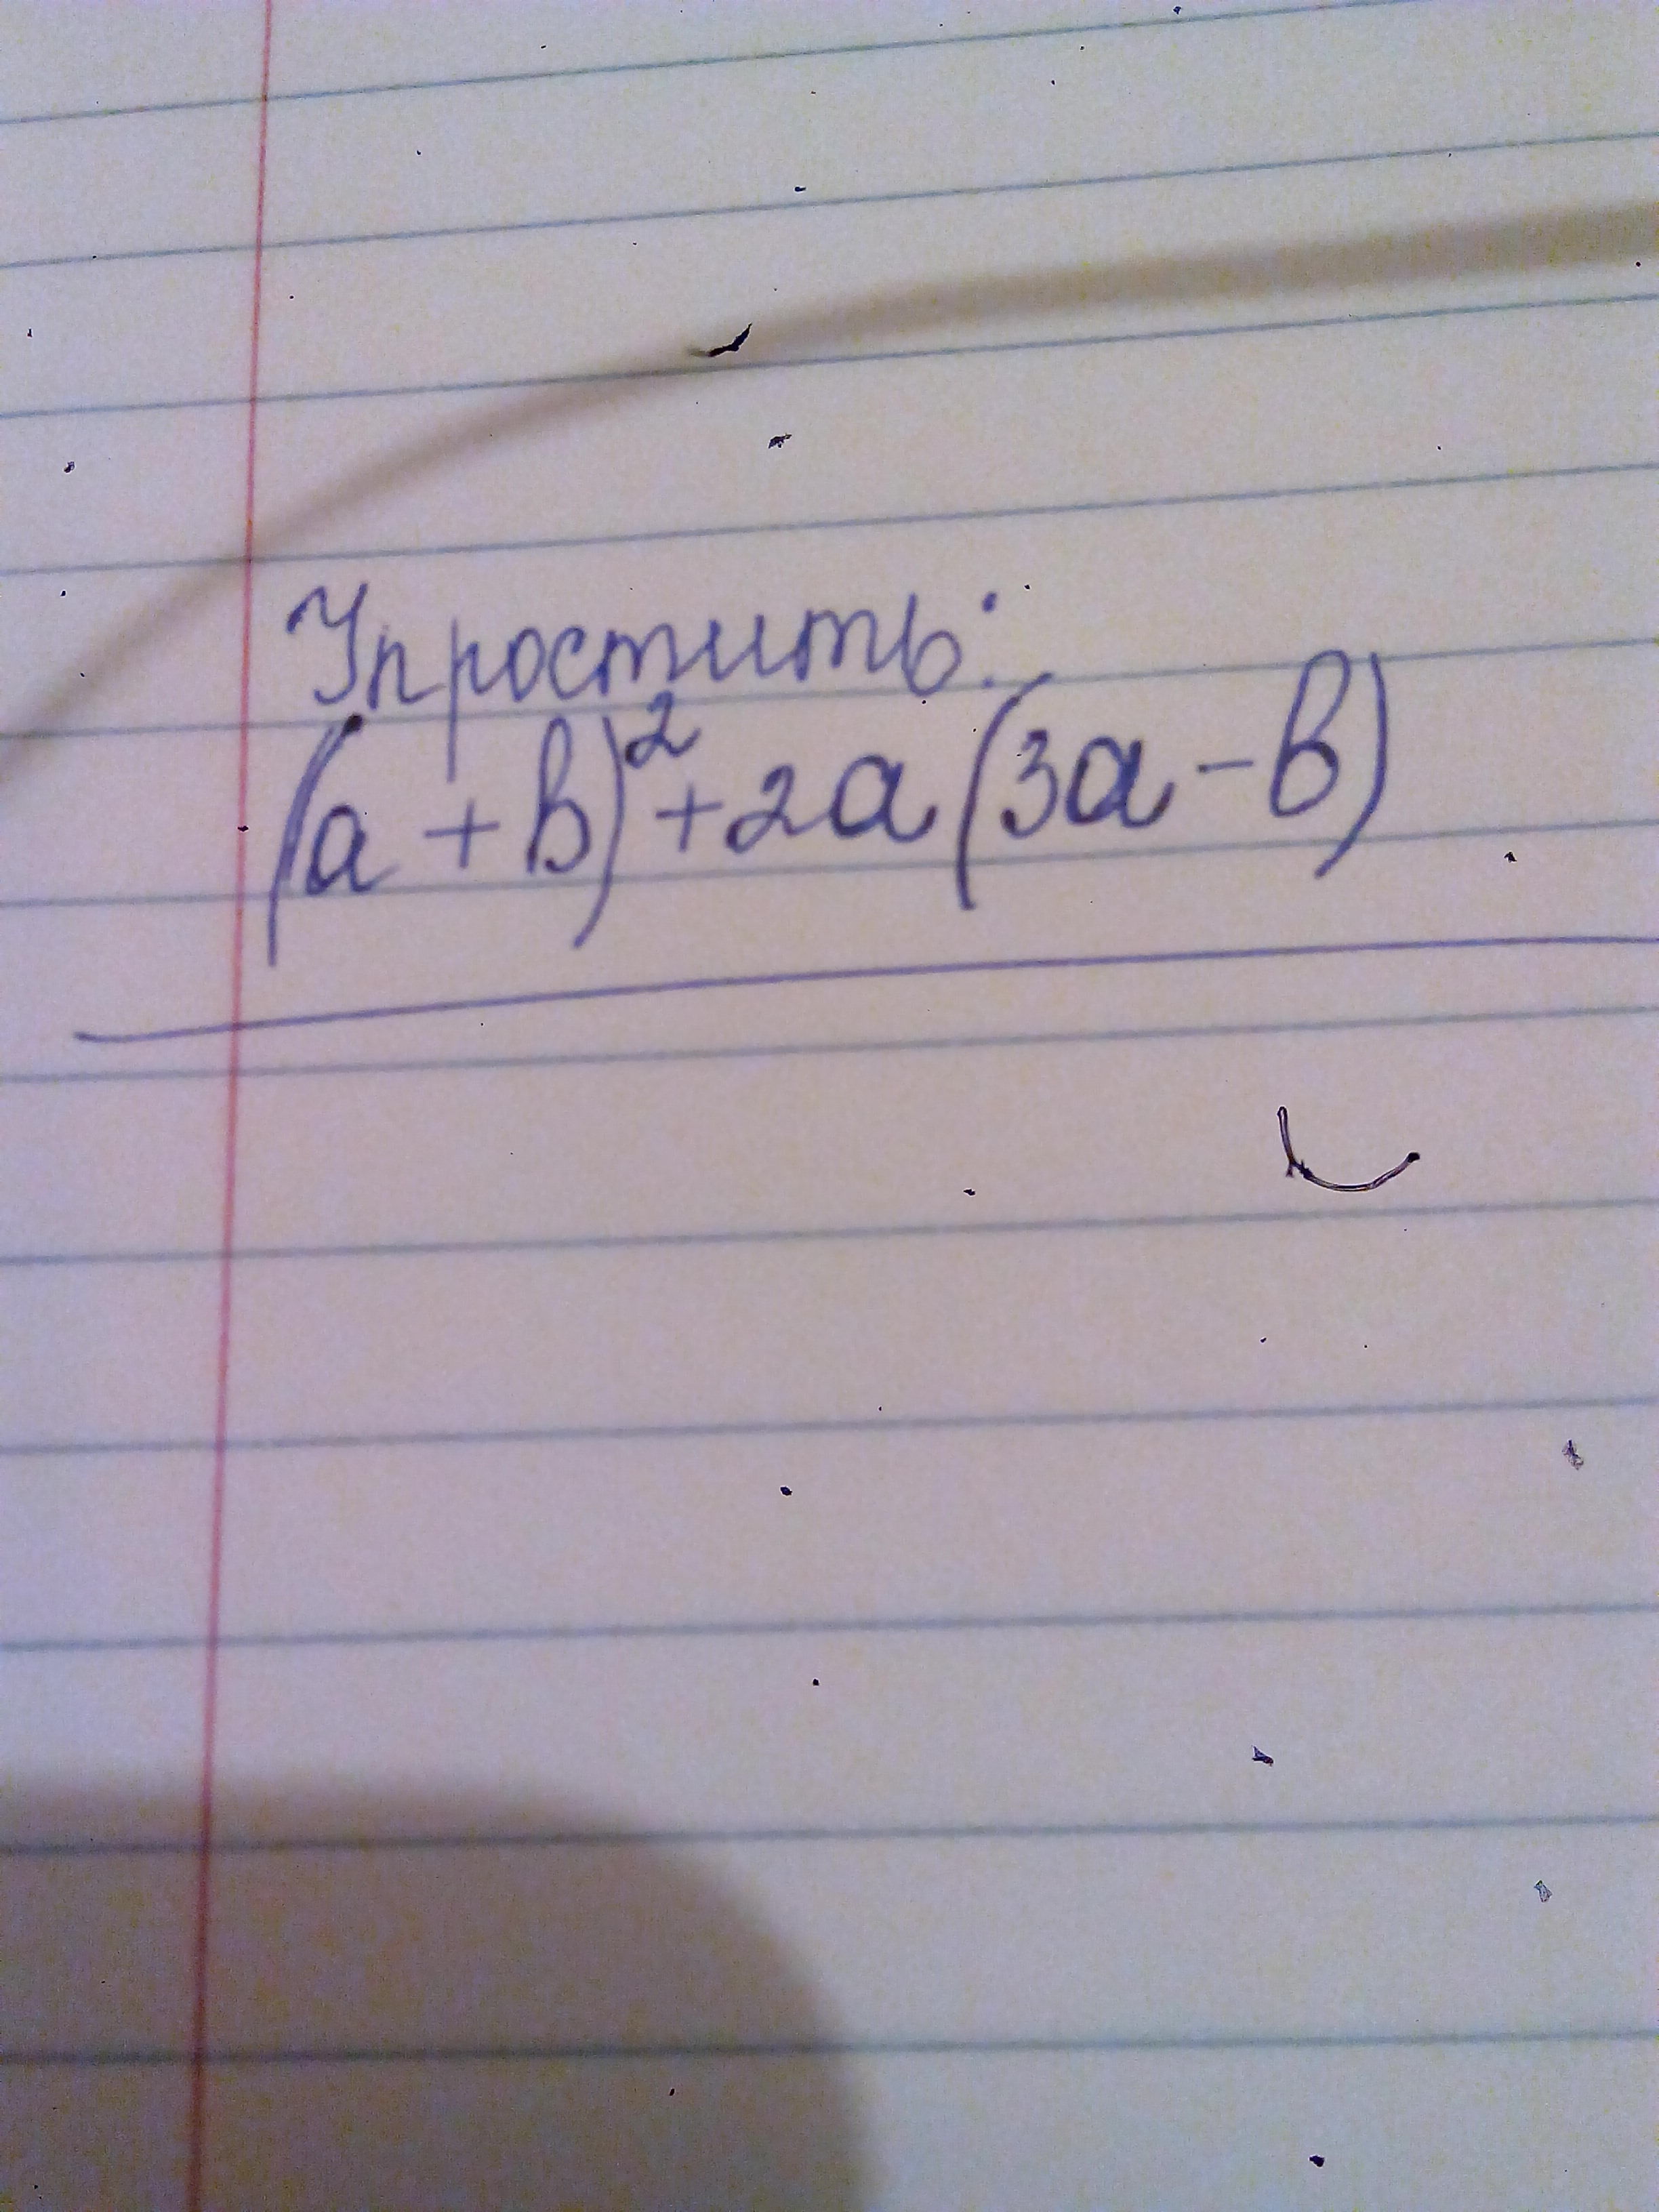 Упростить:
(a + b)² + 2a(3a - b)